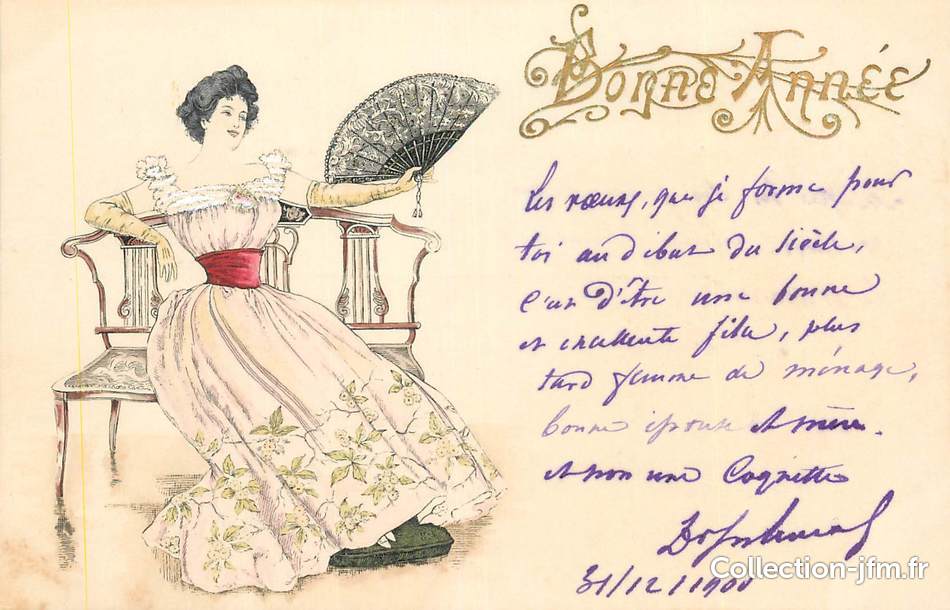 Bonne Année
Les vœux, que je forme pour
toi au début du siècle,
c'est d'être une bonne
et excellente fille, plus
tard femme de ménage,
bonne épouse et mère.
et non une Coquette
31/12/1900
Collection-jfm.fr